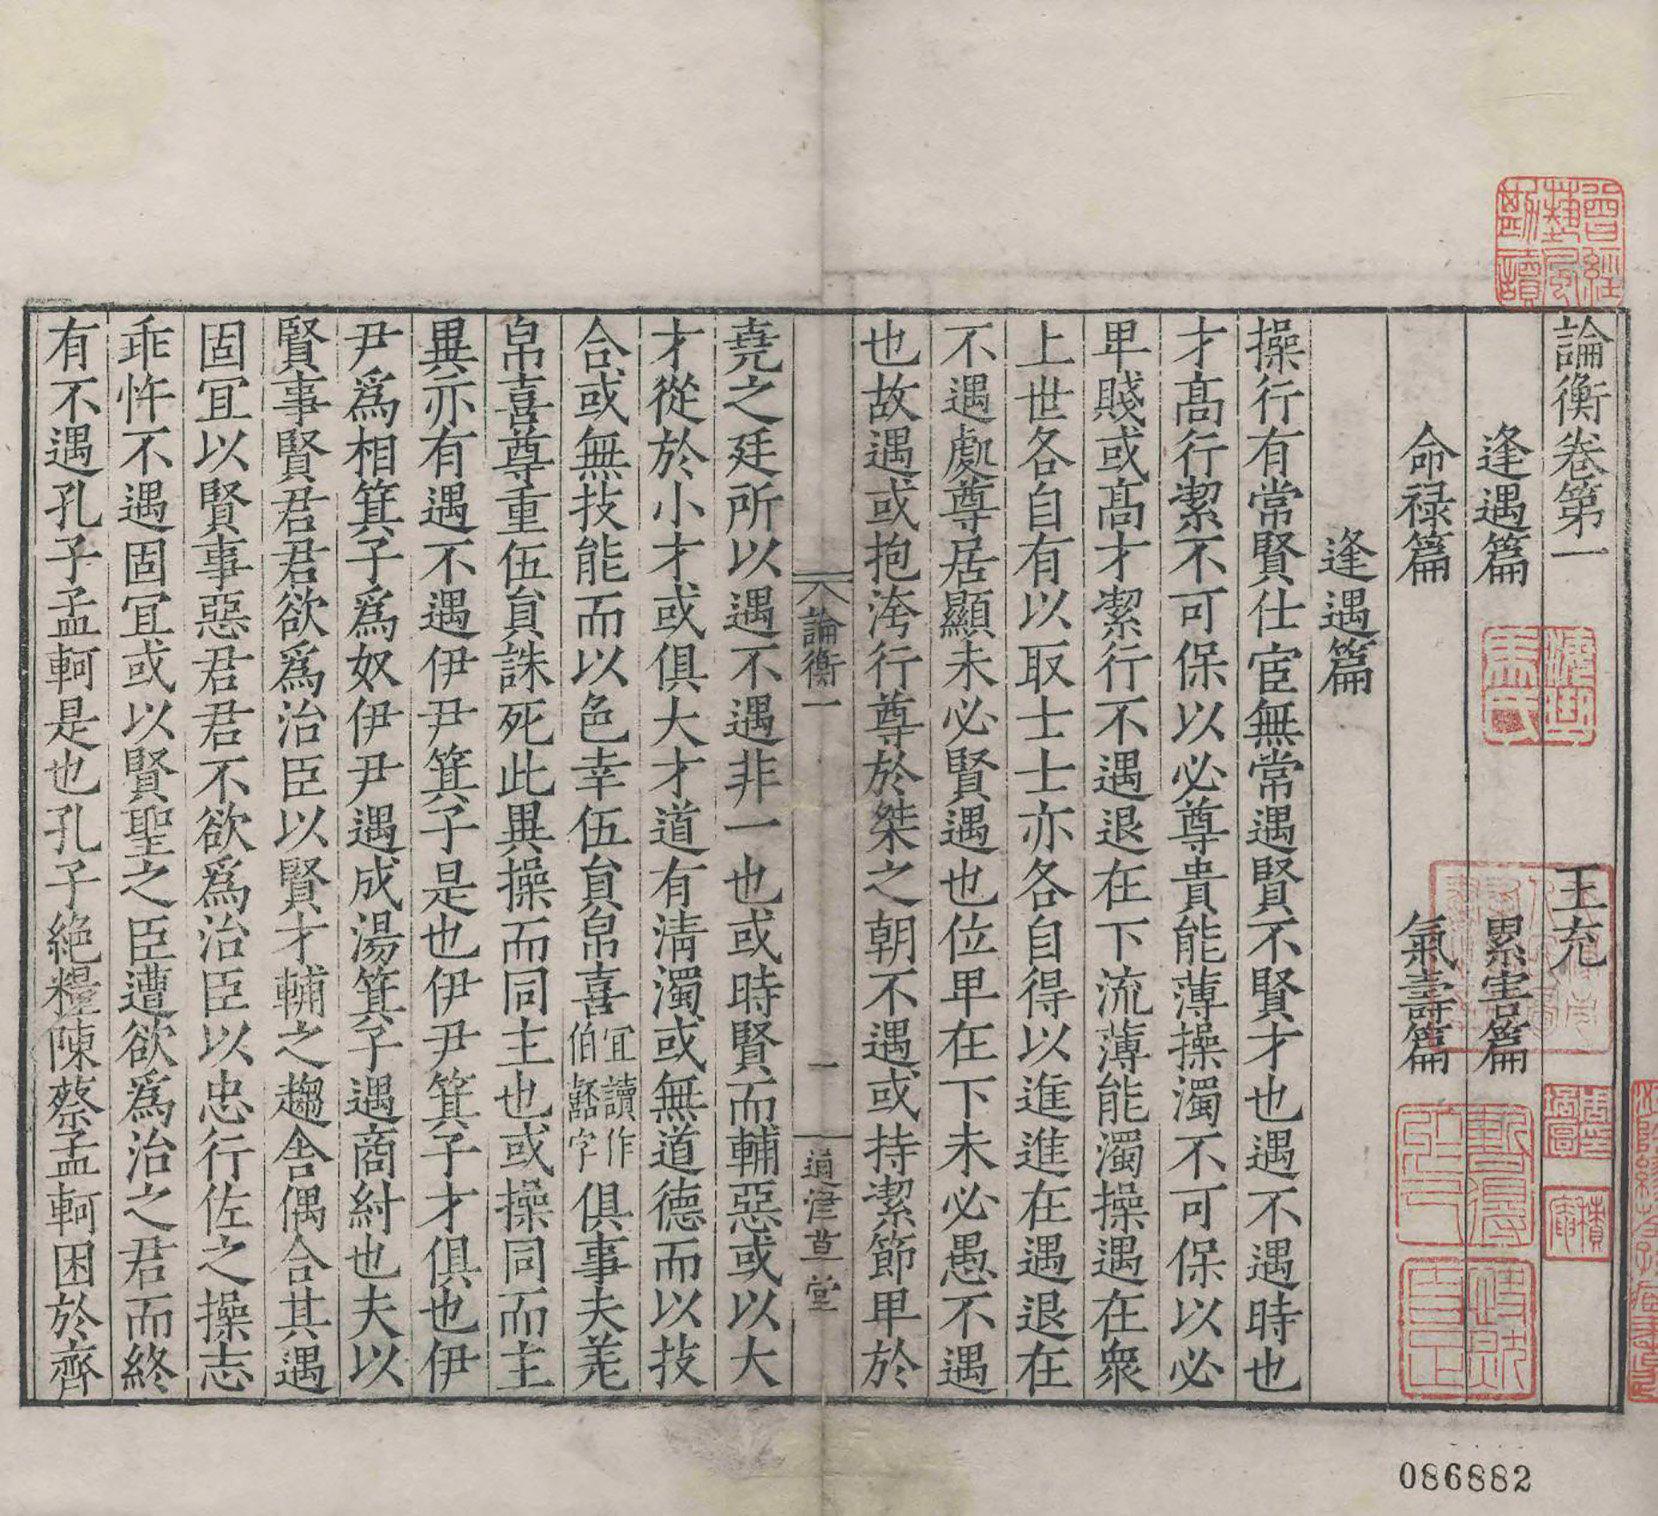 論衡卷第一 王充
逢遇篇 累害篇
命祿篇 氣壽篇
逢遇篇
操行有常賢仕宦無常遇賢不賢才也遇不遇時也
才髙行潔不可保以必尊貴能薄操濁不可保以必
卑賤或髙才潔行不遇退在下流薄能濁操遇在衆
上世各自有以取士士亦各自得以進進在遇退在
不遇處尊居顯未必賢遇也位卑在下未必愚不遇
也故遇或抱洿行尊於桀之朝不遇或持潔節卑於
論衡一 一 道津草堂
堯之廷所以遇不遇非一也或時賢而輔惡或以大
才從於小才或俱大才道有清濁或無道德而以技
合或無技能而以色幸伍員帛喜宜讀作伯嚭字俱事夫差
帛喜尊重伍員誅死此異操而同主也或操同而主
異亦有遇不遇伊尹箕子是也伊尹箕子才俱也伊
尹爲相箕子爲奴伊尹遇成湯箕子遇商紂也夫以
賢事賢君君欲爲治臣以賢才輔之趨舍偶合其遇
固宜以賢事惡君君不欲爲治臣以忠行佐之操志
乖忤不遇固宜或以賢聖之臣遭欲爲治之君而終
有不遇孔子孟軻是也孔子絶糧陳蔡孟軻困於齊
曾經藝風勘讀
086882